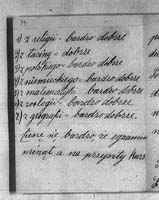 14
1) z religii - bardzo dobrze
2) z łaciny - dobrze
3) z polskiego - bardzo dobrze
4) z niemieckiego - bardzo dobrze
5) z matematyki - bardzo dobrze
6) z zoologii - bardzo dobrze
7) z geografii - bardzo dobrze.
Cieszę się bardzo, że egzamin
minął, a na przyszły kurs